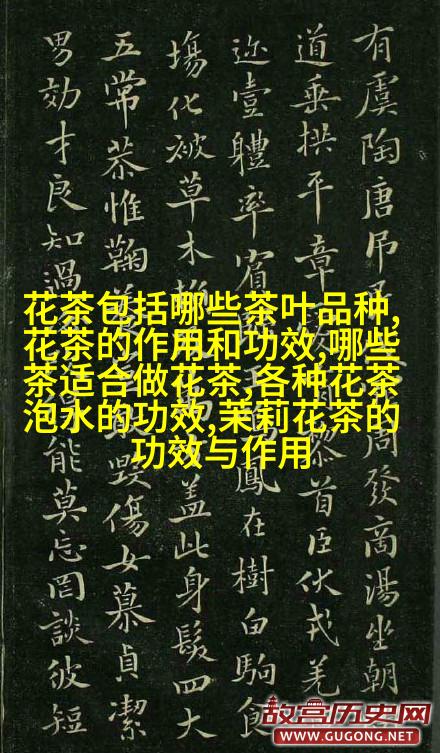 有虞陶唐吊周發商湯坐朝
道垂拱平章黎首臣伏戎羌
迩壹體率賓鳳在樹白駒食
塲化被草木蓋此身髮四大
五常恭惟鞠毀傷女慕貞潔
男効才良知過能莫忘罔談彼短
花茶包括哪些茶叶品种,
花茶的作用和功效,哪些
茶适合做花茶,各种花茶
泡水的功效,茉莉花茶的
功效与作用
故宫历史网
WWW.GUGONG.NET